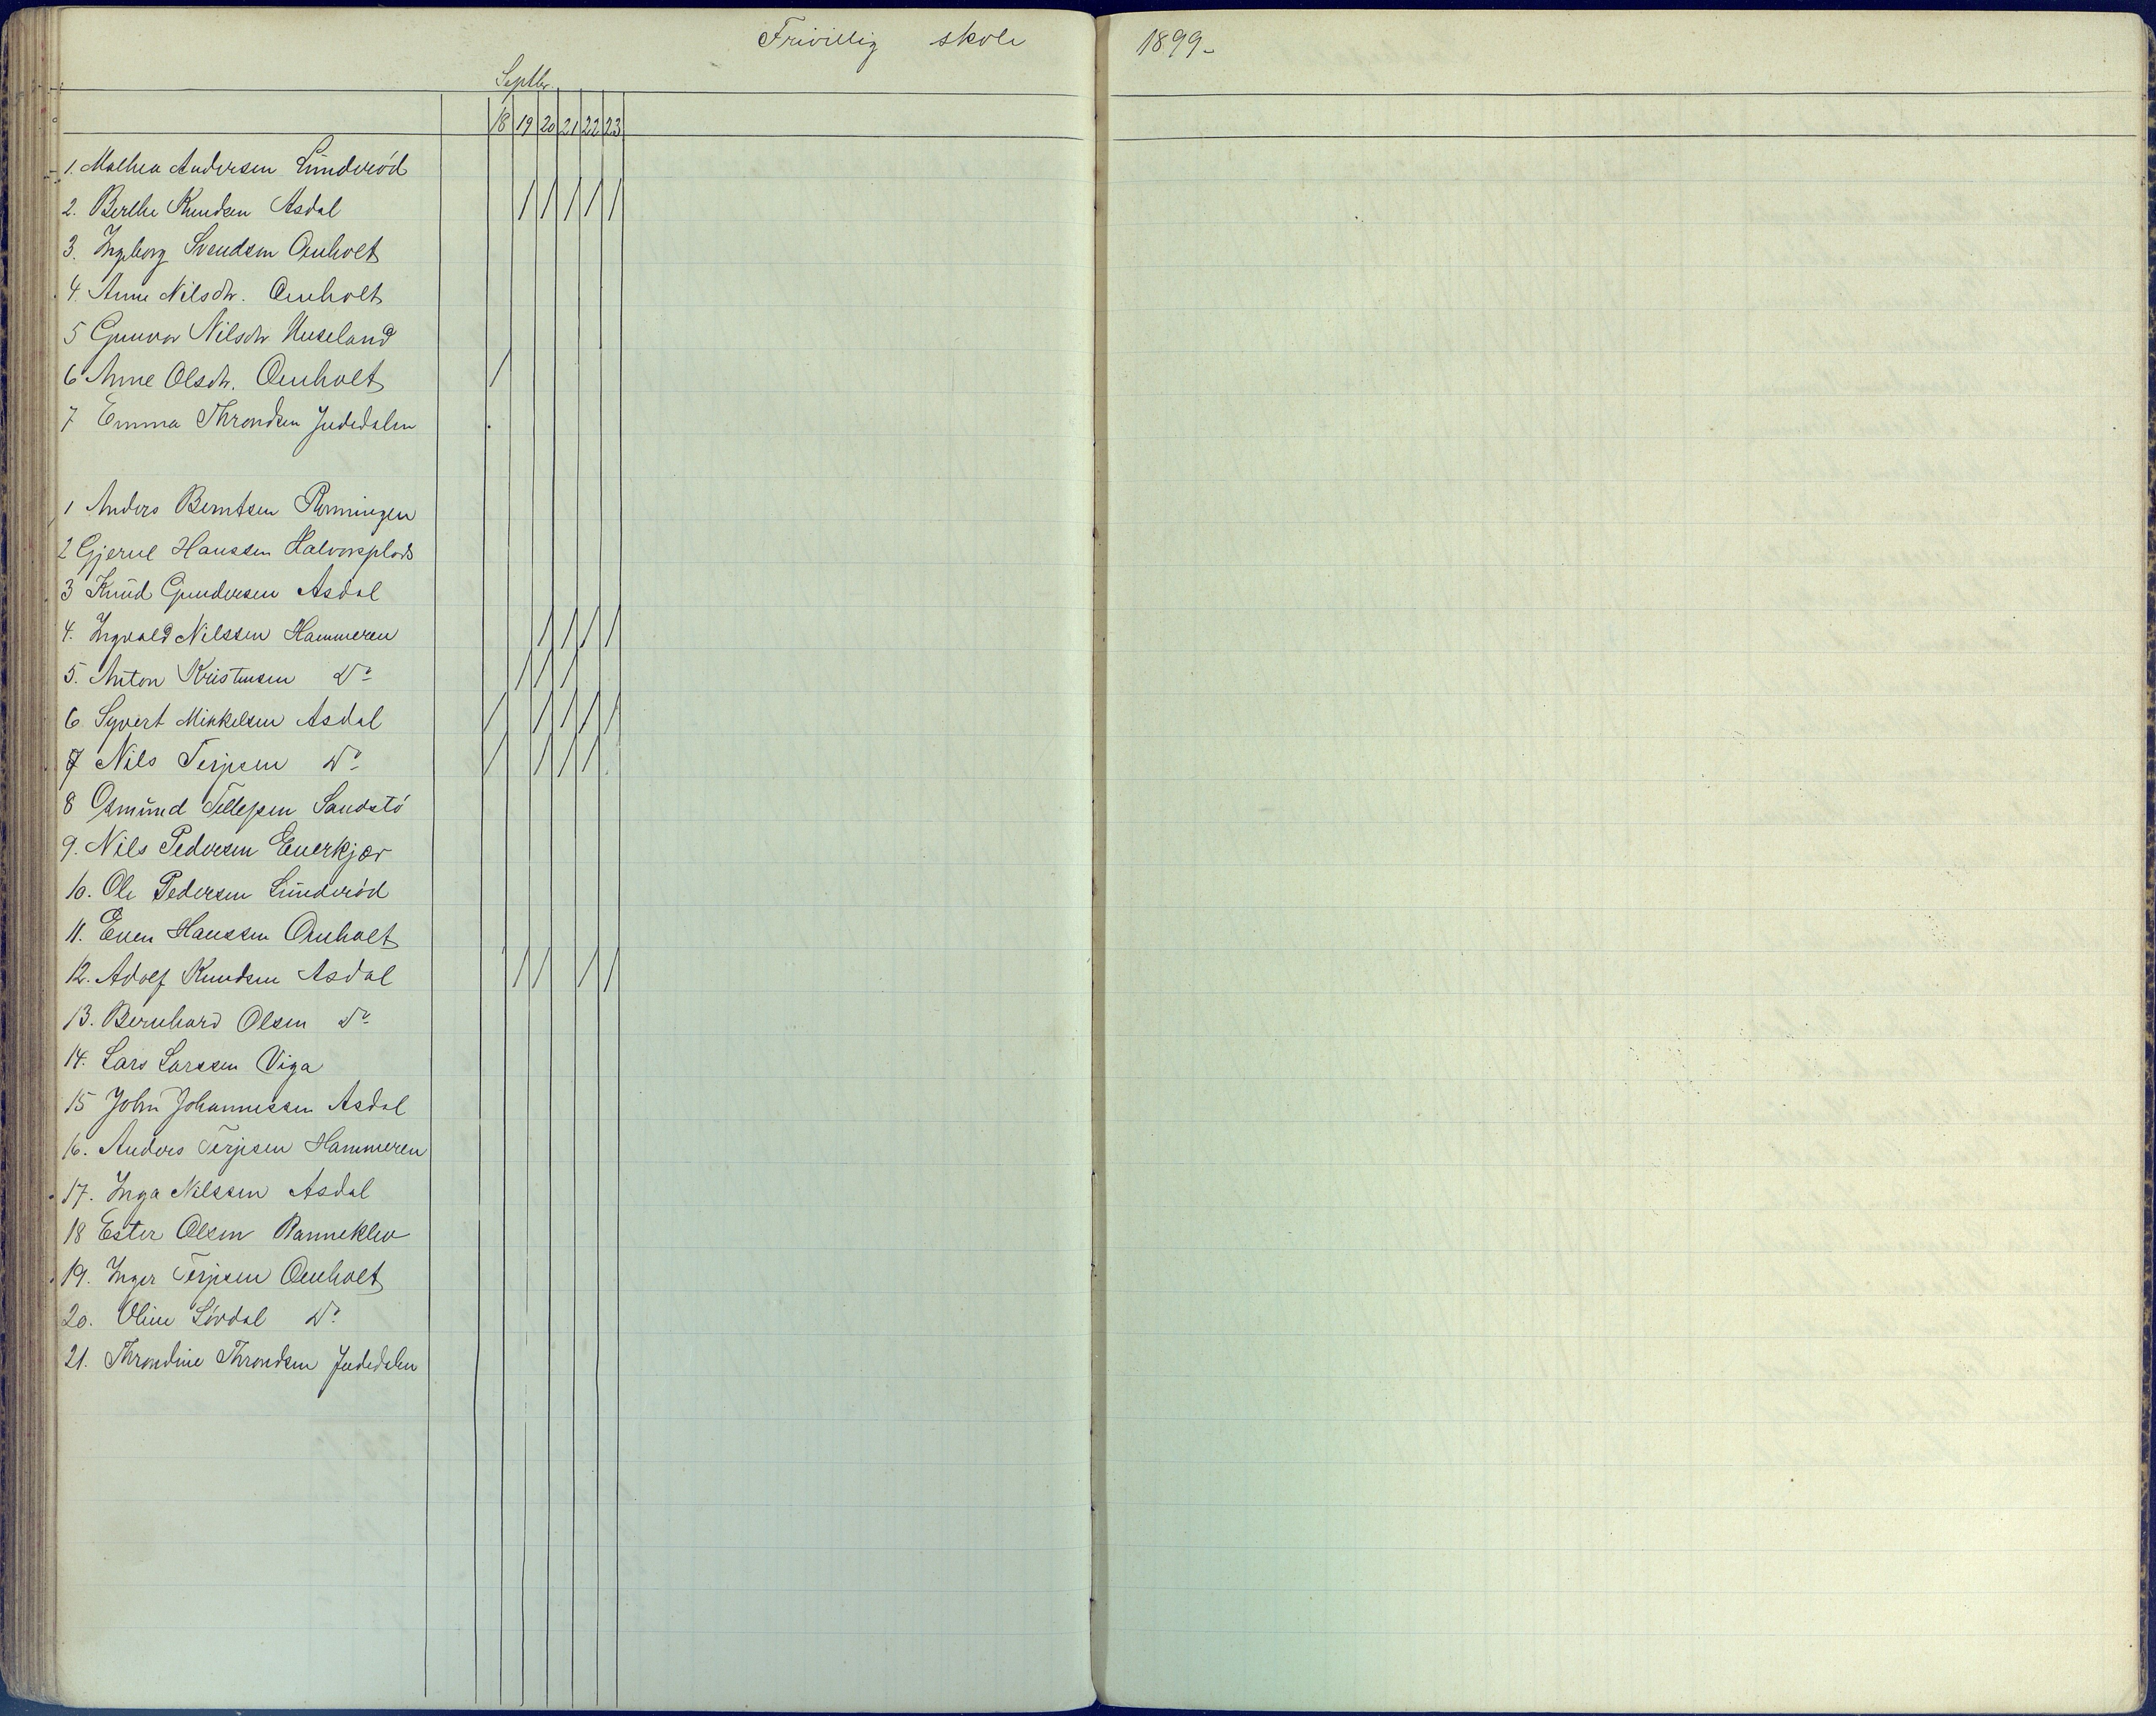 Frivillig skole 1899-
Septbr.
18 19 20 21 22 23
1. Mathea Andersen Lunderød
2. Berthe Knudsen Asdal / / / / /
3. Ingeborg Svendsen Omholt
4. Anne Nilsdtr. Omholt
5 Gunvor Nilsdtr Huseland
6 Anne Olsdtr. Omholt /
7 Emma Throndsen Judedalen
1 Anders Berntsen Rønningen
2 Gjerul Hanssen Halvorsplads
3 Knud Gundersen Asdal
4. Ingvald Nilssen Hammeren / / / /
5. Anton Kristensen Do / / /
6 Syvert Mikkelsen Asdal / / / / /
7 Nils Terjesen Do / / / /
8 Osmund Tellefsen Sandstø
9. Nils Pedersen Enerkjær
10. Ole Pedersen Lunderød
11. Even Hanssen Omholt
12. Adolf Knudsen Asdal / / / /
13. Bernhard Olsen Do
14. Lars Larssen Viga
15 John Johannessen Asdal
16. Anders Terjesen Hammeren
17. Inga Nilssen Asdal
18 Ester Olsen Ranneklev
19. Inger Terjesen Omholt
20. Oline Løvdal Do
21. Throndine Throndsen Judedalen